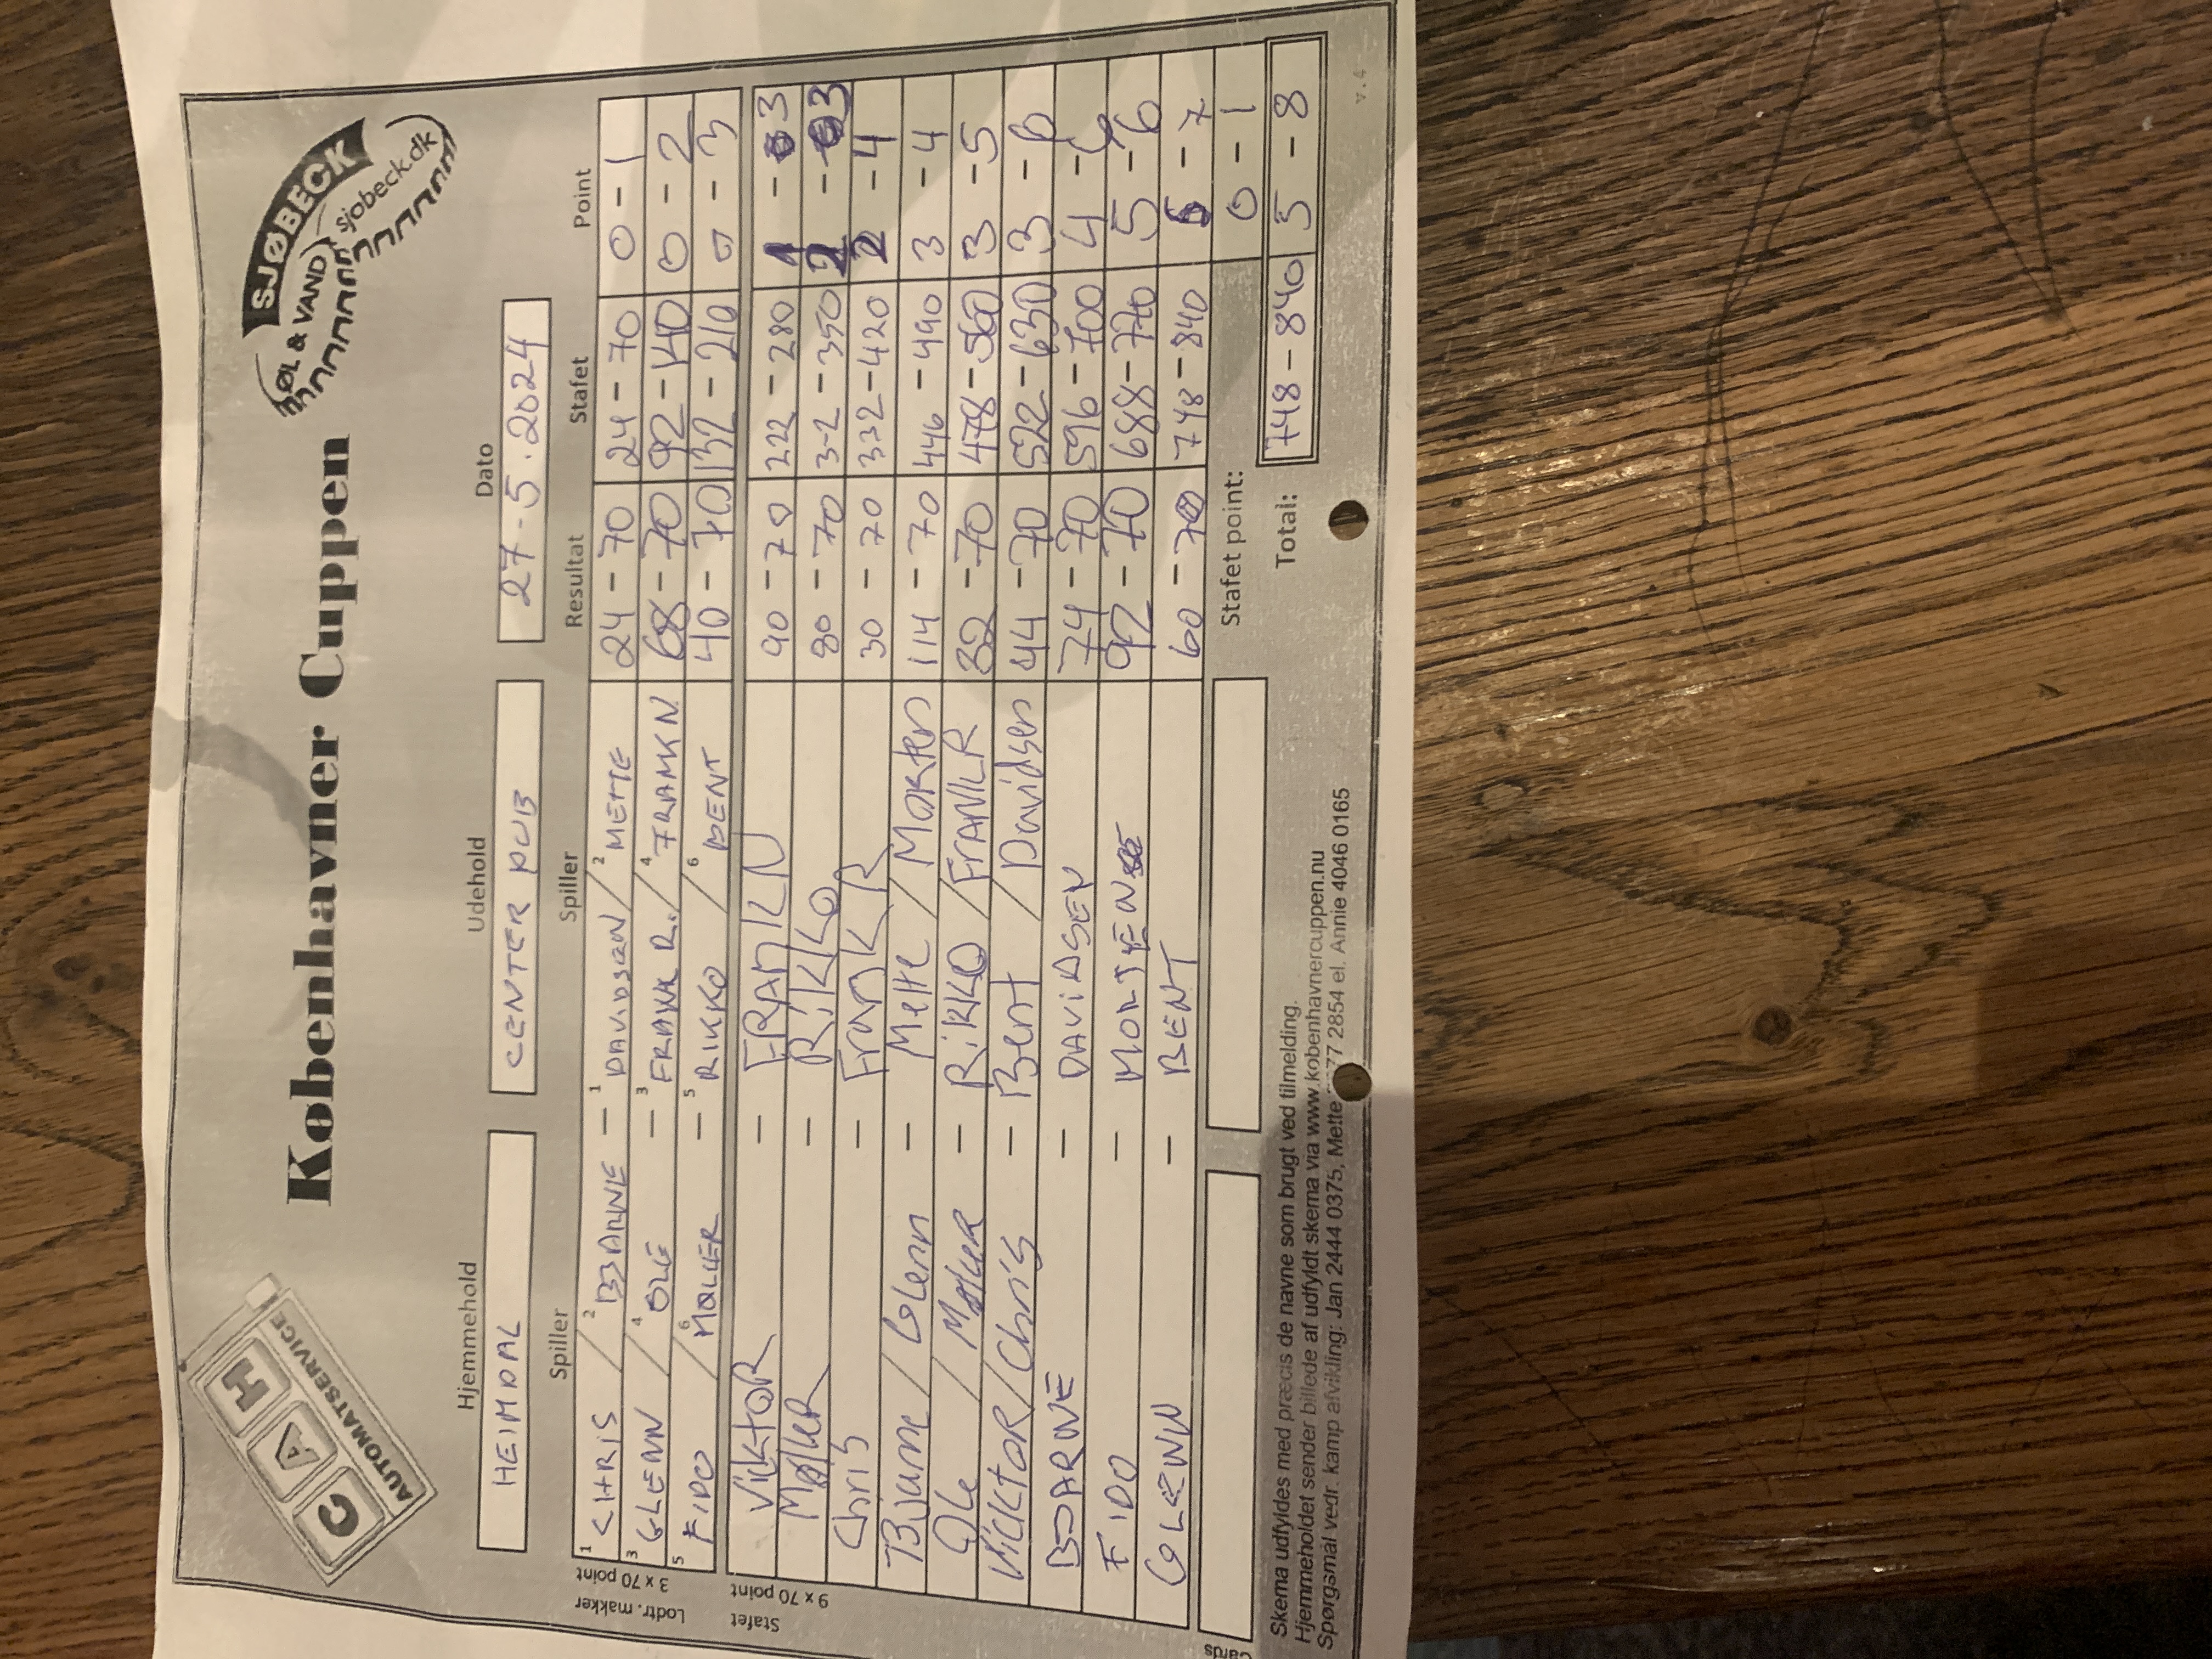 CAH
AUTOMATSERVICE
Københavner Cuppen
SJØBECK
ØL & VAND
sjobeck.dk
Hjemmehold Udehold Dato
HEIMDAL CENTER PUB 27-5.2024
Spiller Spiller Resultat Stafet Point
Lodtr. makker
3 x 70 point
1 CHRIS / 2 BJARNE - 1 DAVIDSEN / 2 METTE 24-70 24-70 0-1
3 GLENN / 4 OLE - 3 FRANK R. / 4 FRANK N 68-70 92-140 0-2
5 FIDO / 6 MØLLER - 5 RIKKO / 6 BENT 40-70 132-210 0-3
Stafet
9 x 70 point
VICKTOR - FRANK N 90-70 222-280 1-3
Møller - RiKKO 80-70 3-2-350 2-3
Chris - Frank R 30-70 332-420 2-4
Bjarne / Glenn - Mette / Morten 114-70 446-490 3-4
Ole / Møller - RiKKO / FRANK R 32-70 478-560 3-5
Vicktor / Chris - Bent / Davidsen 44-70 522-630 3-6
BJARNE - DAVIDSEN 74-70 596-700 4-6
FIDO - MORTEN 92-70 688-770 5-6
GLENN - BENT 60-70 748-840 5-7
Cards
Stafet point: 0-1
Total: 748-840 5-8
Skema udfyldes med præcis de navne som brugt ved tilmelding.
Hjemmeholdet sender billede af udfyldt skema via www.kobenhavnercuppen.nu
Spørgsmål vedr. kamp afvikling: Jan 2444 0375, Mette 77 2854 el. Annie 4046 0165
v.4